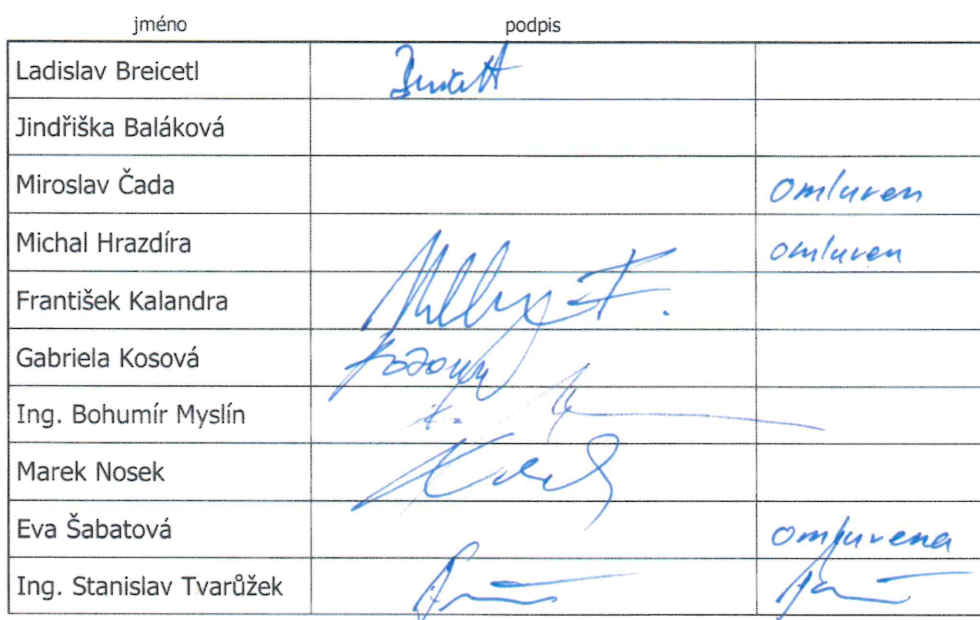 jméno podpis
Ladislav Breicetl
Jindřiška Baláková
Miroslav Čada omluven
Michal Hrazdíra omluven
František Kalandra
Gabriela Kosová
Ing. Bohumír Myslín
Marek Nosek
Eva Šabatová omluvena
Ing. Stanislav Tvarůžek